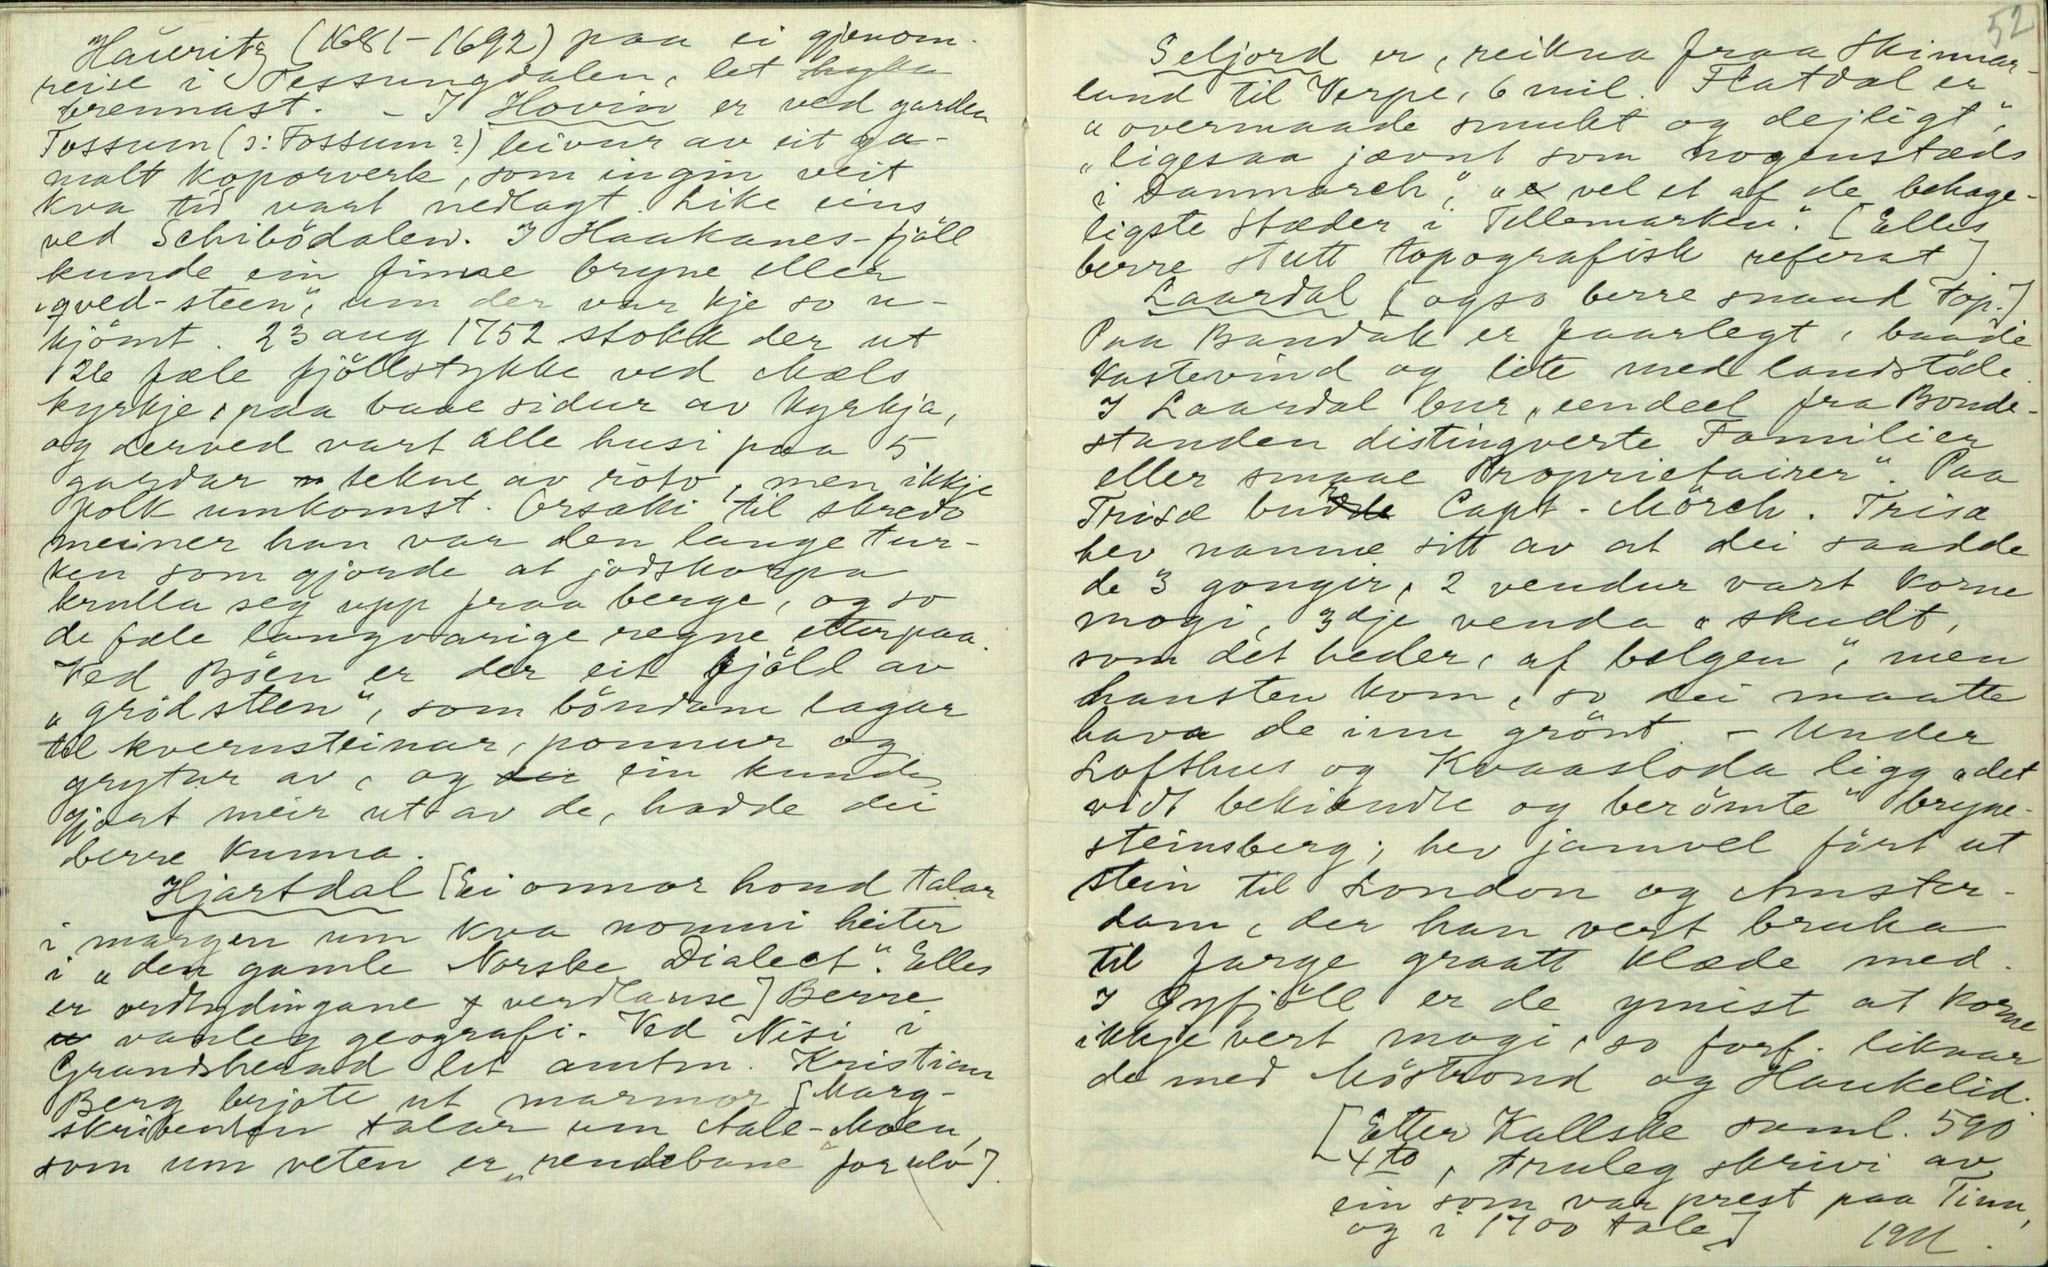 Hauritz (1681-1692) paa ei gjenom-
reise i Tessungdalen, let
brennast. - I Hovin er ved garden
Tossum (ɔ: Fossum?) leivur av eit ga-
malt koporverk, som ingin veit
kva tid vart nedlagt. Like eins
ved Schibödalen. I Haakanes-fjöll
kunde ein finne bryne eller
"qved-steen", um der var kje so u-
kjömt. 23 aug 1752 stokk der ut
26 fæle fjöllstykke ved Mæls
kyrkje, paa baae sidur av kyrkja,
og derved vart alle husi paa 5
gardar tekne av röto, men ikkje
folk umkomst. Orsaki til skredo
meiner han var den lange tur-
ken som gjorde at jordskorpa
krulla seg upp fraa berge, og so
de fæle langvarige regne etterpaa.
Ved Böen er der eit fjöll av
"grödsteen", som böndane lagar
til kvernsteinar, ponnur og
grytur av, og ein kunde
gjort meir ut av de, hadde dei
berre kunna.
Hjartdal [Ei onnor hond talar
i margen um kva nomni heiter
i "den gamle Norske Dialect". Elles
er ordtydingane verdlause] Berre
vanleg geografi. Ved Nisi i
Grandsherad let amtm. Kristian
Berg brjote ut marmor [Marg-
skribenten talar um Aale-Moen,
som um veten er "rendebane for ulv].
52
Seljord er, reikna fraa Skinnar-
land til Verpe, 6 mil. Flatdal er
"overmaade smukt og dejligt",
"ligesaa jævnt som nogenstæds
i Danmarch", "vel et af de behage-
ligste Stæder i Tellemarken". [Elles
berre stutt topografisk referat]
Laardal [ogso berre snaud top.]
Paa Bandak er faarlegt, baade
kastevind og lite med landstöde.
I Laardal bur "eendeel fra Bonde-
standen distingverte Familier
eller smaae Proprietairer". Paa
Trisæ bur Capt. Mörch. Trisæ
hev namne sitt av at dei saadde
de 3 gongir, 2 vendur vart korne
mogi, 3dje venda "skudt,
som det heder, af bælgen", men
hausten kom, so dei maatte
hava de inn grönt. - Under
Lofthus og Kvaasloda ligg "det
vidt bekiendte og berömte" bryne-
steinsberg; hev jamvel fört ut
stein til London og Amster-
dam, der han vert bruka
til farge graatt klæde med.
I Öyfjöll er de ymist at korne
ikkje vert mogi, so forf. liknar
de med Möstrond og Haukelid.
[Etter Kallske saml. 590
4to, truleg skrivi av
ein som var prest paa Tinn,
og i 1700 tale]
1911.